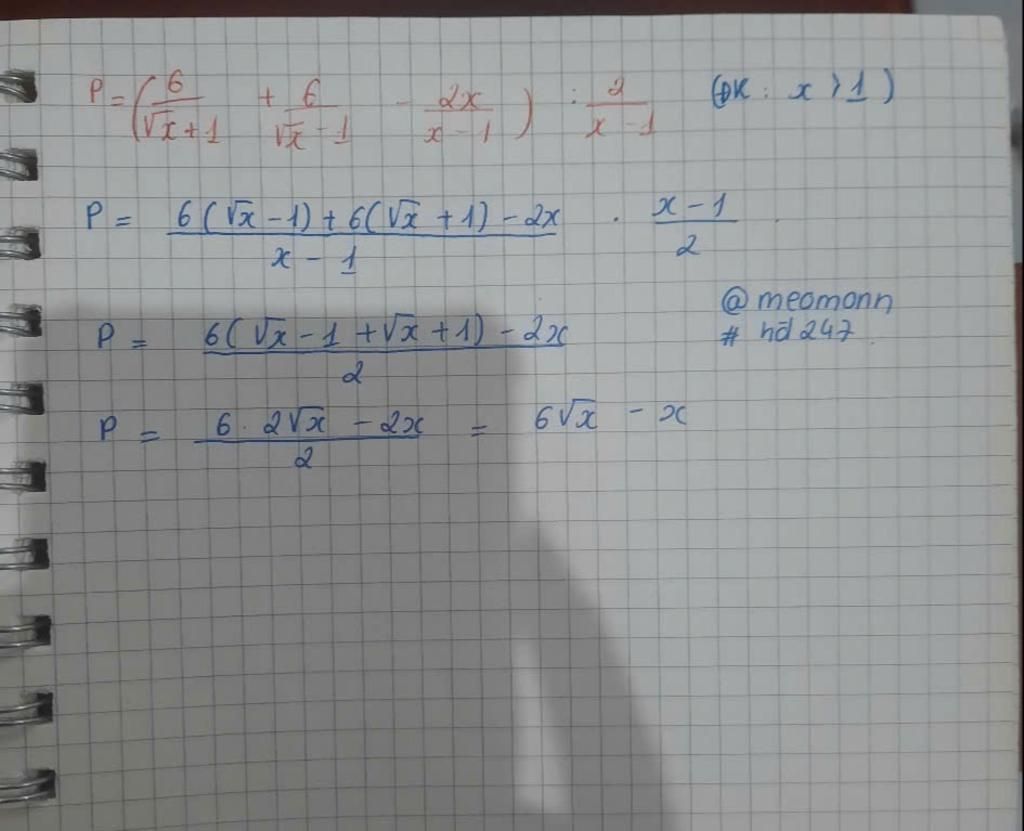 P = (6/(√x + 1) + 6/(√x - 1) - 2x/(x - 1)) : 2/(x - 1) (ĐK: x > 1)
P = (6(√x - 1) + 6(√x + 1) - 2x)/(x - 1) . (x - 1)/2
@meomonn
P = (6(√x - 1 + √x + 1) - 2x)/2
# hd247
P = (6. 2√x - 2x)/2 = 6√x - x